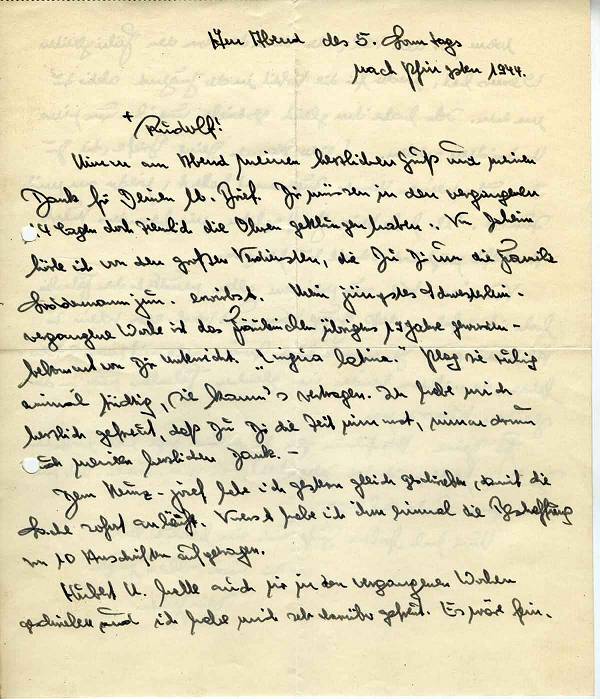 Am Abend des 5. Sonntags
nach Pfingsten 1944.
+
Rudolf!
Nimm am Abend meinen herzlichen Gruß und meinen
Dank für Deinen lb. Brief. Dir müssen in den vergangenen
14 Tagen doch ziemlich die Ohren geklungen haben. Von daheim
hörte ich von den großen Verdiensten, die Du Dir um die Familie
jun. erwirbst. Mein jüngstes Schwesterlein -
vergangene Woche ist das Fräulein übrigens 14 Jahre geworden -
bekommt von Dir Unterricht. „Lingua latina." Plag sie ruhig
einmal tüchtig, sie kann's vertragen. Ich habe mich
herzlich gefreut, daß Du Dir die Zeit nimmst, nimm drum
auch meinen herzlichen Dank. -
Dem Heinz-Josef habe ich gestern gleich geschrieben, damit die
Sache sofort anläuft. Vorerst habe ich ihm einmal die Beschaffung
von 10 Anschriften aufgetragen.
Hubert U. hatte auch mir in den vergangenen Wochen
geschrieben und ich habe mich sehr darüber gefreut. Es wäre fein,